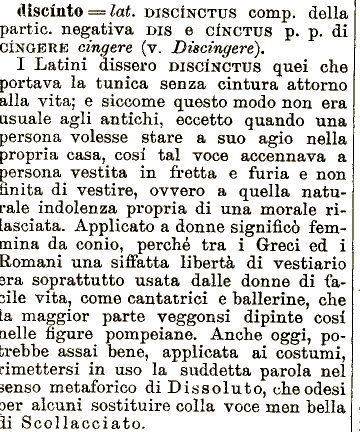 discínto = lat. DISCÍNCTUS comp. della
partic. negativa DIS e CÍNCTUS p. p. di
CÍNGERE cingere (v. Discingere).
I Latini dissero DISCÍNCTUS quei che
portava la tunica senza cintura attorno
alla vita; e siccome questo modo non era
usuale agli antichi, eccetto quando una
persona volesse stare a suo agio nella
propria casa, cosí tal voce accennava a
persona vestita in fretta e furia e non
finita di vestire, ovvero a quella natu-
rale indolenza propria di una morale ri-
lasciata. Applicato a donne significò fem-
mina da conio, perché tra i Greci ed i
Romani una siffatta libertà di vestiario
era soprattutto usata dalle donne di fa-
cile vita, come cantatrici e ballerine, che
la maggior parte veggonsi dipinte cosí
nelle figure pompeiane. Anche oggi, po-
trebbe assai bene, applicata ai costumi,
rimettersi in uso la suddetta parola nel
senso metaforico di Dissoluto, che odesi
per alcuni sostituire colla voce men bella
di Scollacciato.